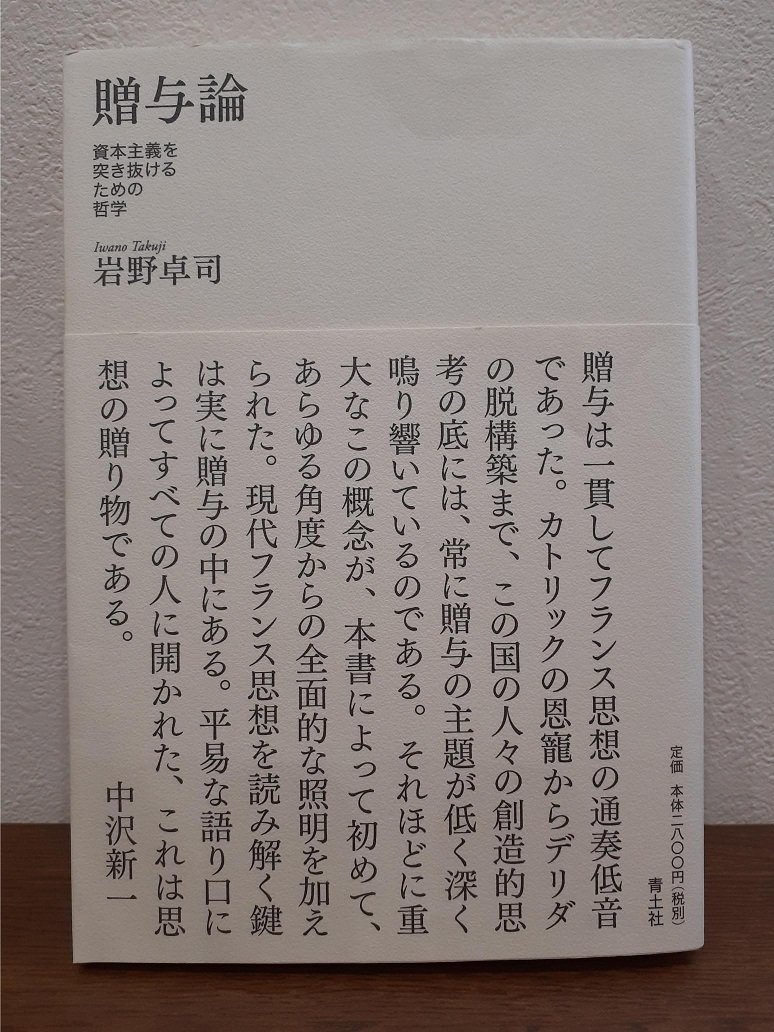 贈与論
資本主義を
突き抜ける
ための
哲学
Iwano Takuji
岩野卓司
贈与は一貫してフランス思想の通奏低音
であった。カトリックの恩寵からデリダ
の脱構築まで、この国の人々の創造的思
考の底には、常に贈与の主題が低く深く
鳴り響いているのである。それほどに重
大なこの概念が、本書によって初めて、
あらゆる角度からの全面的な照明を加え
られた。現代フランス思想を読み解く鍵
は実に贈与の中にある。平易な語り口に
よってすべての人に開かれた、これは思
想の贈り物である。
中沢新一
定価 本体二八〇〇円（税別）
青土社